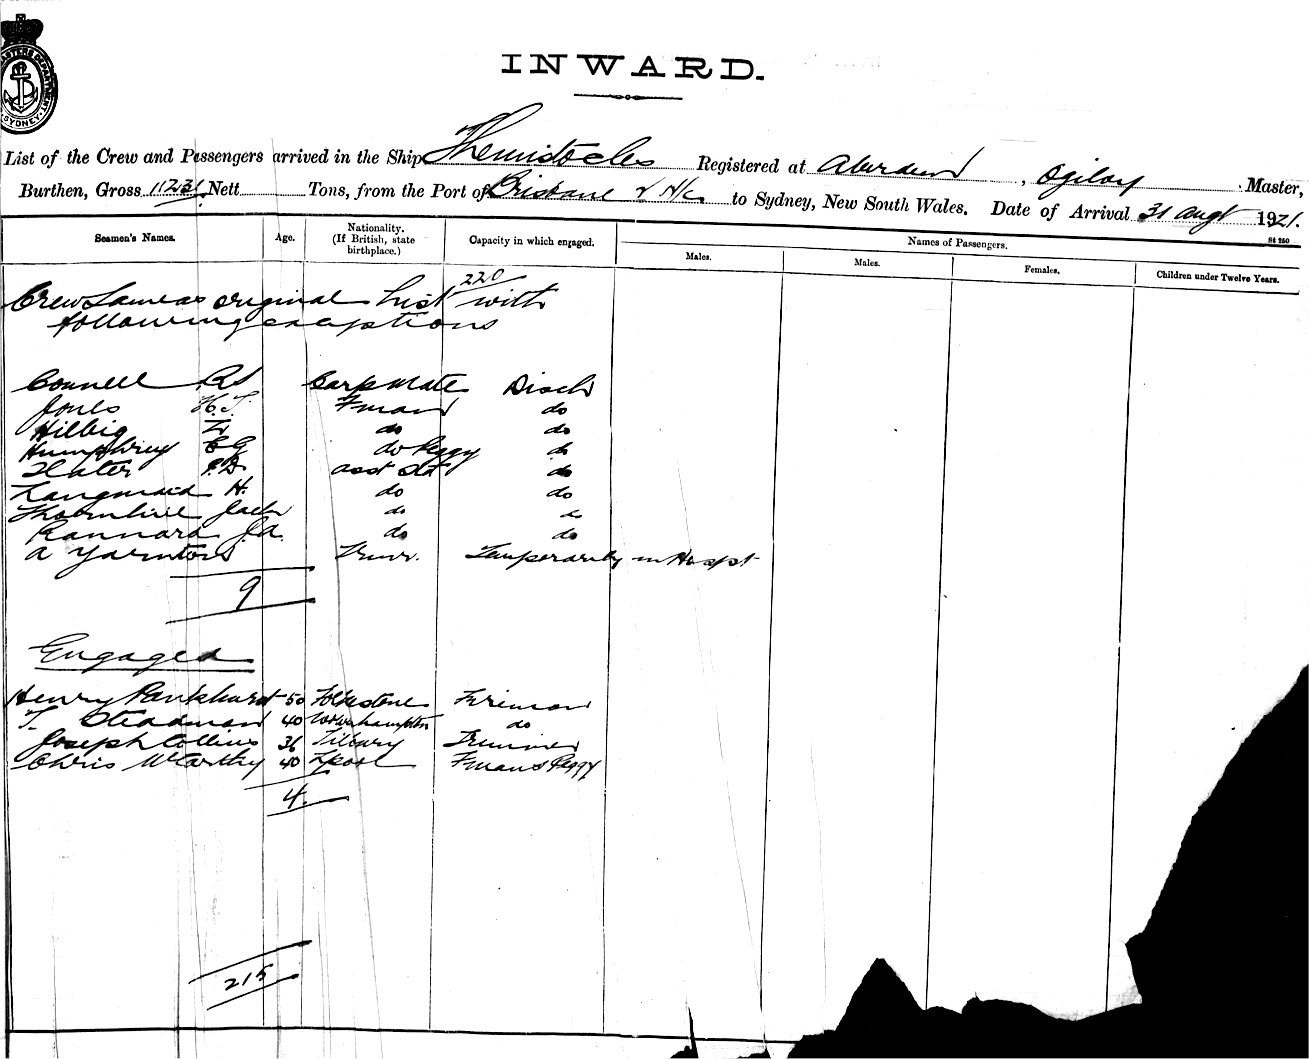 MASTERS DEPARTMENT SYDNEY
INWARD.
List of the Crew and Passengers arrived in the Ship Themistocles Registered at Aberdeen, Ogilvy Master,
Burthen, Gross 11231 Nett Tons, from the Port of Brisbane & N/c to Sydney, New South Wales. Date of Arrival 31 Augt 1921.
St 250
Seamen's Names. Age. Nationality. (If British, state birthplace.) Capacity in which engaged. Names of Passengers.
Males. Males. Females. Children under Twelve Years.
220
Crew Same as original List with
following exceptions
Connell RS Carp Mate Disch
Jones H.T. Fman do
Hilbig L do do
Humphrey CG do Peggy do
Slater P.D. asst Std do
Langmaid H. do do
Thornhill Jack do do
Rannard J.A. do do
A Yarnton Trmr. Temporarily in Hospt
9
Engaged
Henry Pankhurst 50 Folkestone Fireman
T. Steadman 40 Wolverhampton do
Joseph Collins 36 Tilbury Trimmer
Chris McCarthy 40 Lpool Fmans Peggy
4.
215